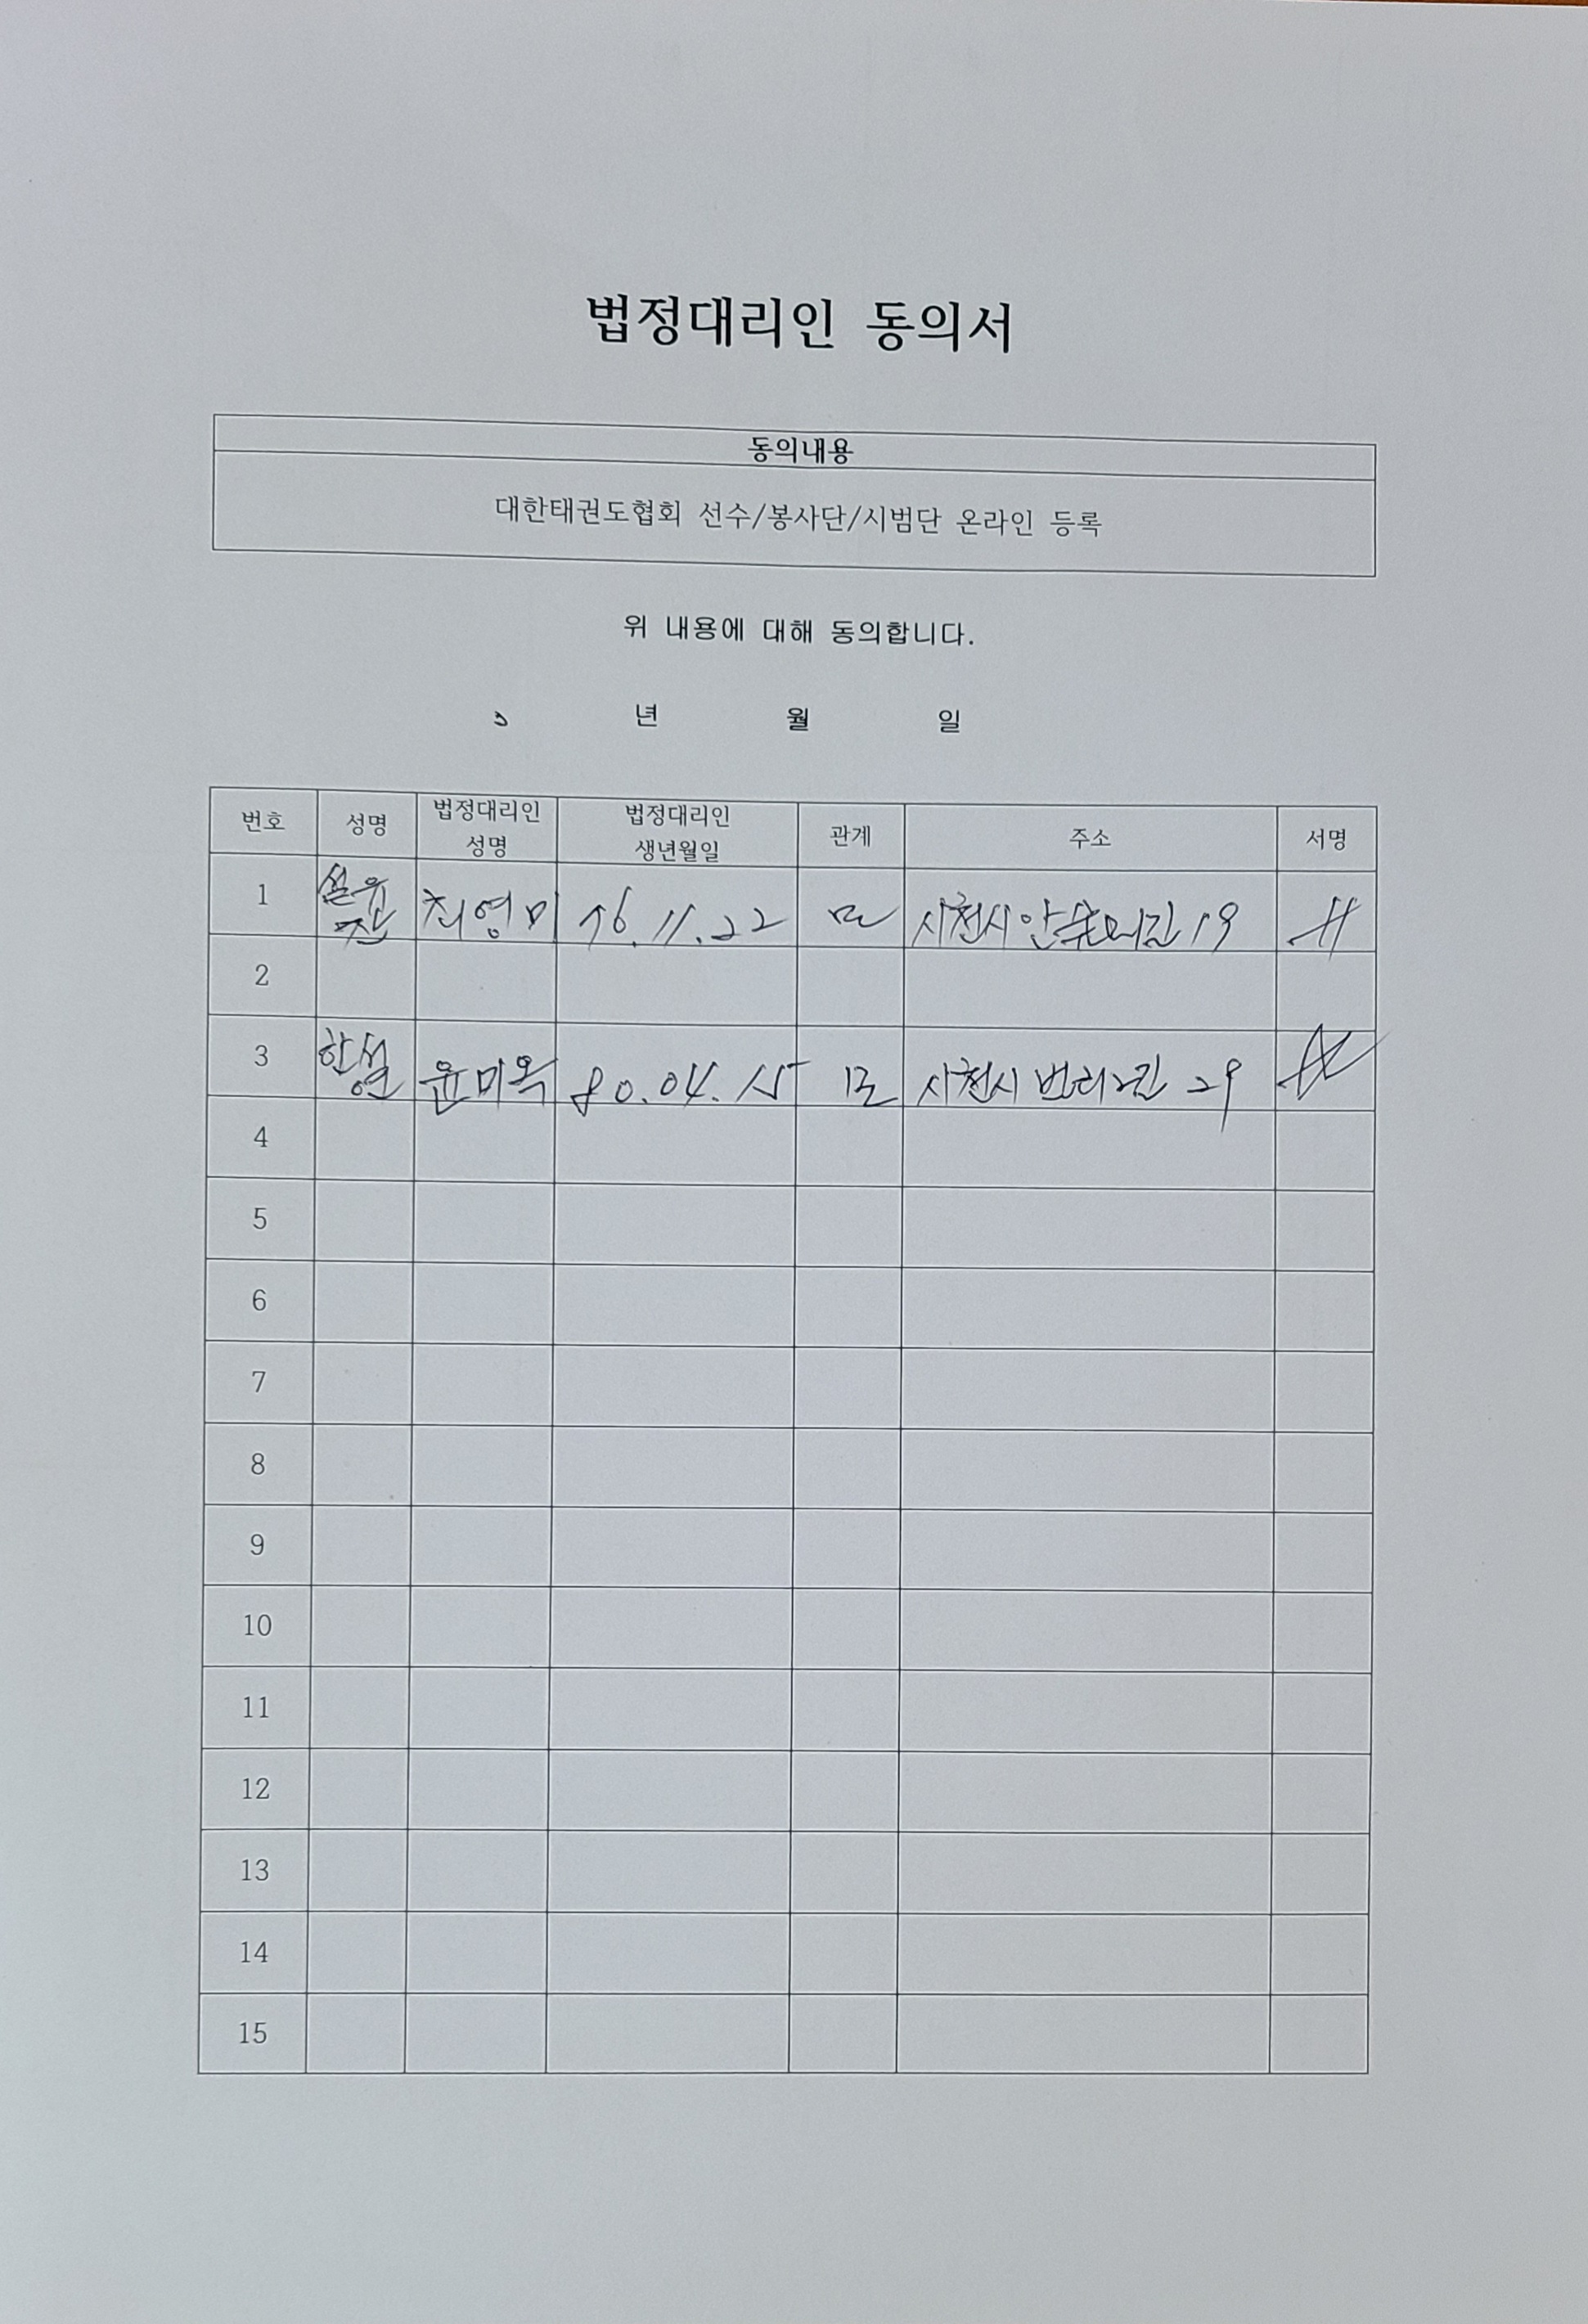 법정대리인 동의서
동의내용
대한태권도협회 선수/봉사단/시범단 온라인 등록
위 내용에 대해 동의합니다.
년 월 일
번호 성명 법정대리인 성명 법정대리인 생년월일 관계 주소 서명
1 설윤 최영미 76.11.22 모 사천시 19
2
3 한설 윤미옥 80.04.15 모 사천시 29
4
5
6
7
8
9
10
11
12
13
14
15